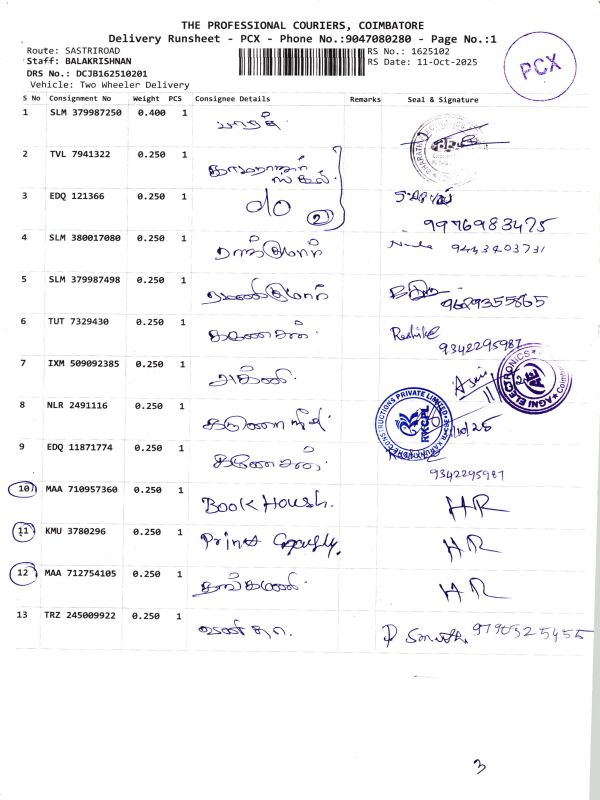 THE PROFESSIONAL COURIERS, COIMBATORE
Delivery Runsheet - PCX - Phone No.:9047080280 - Page No.:1
Route: SASTRIROAD
RS No.: 1625102
Staff: BALAKRISHNAN
RS Date: 11-Oct-2025
DRS No.: DCJB162510201
Vehicle: Two Wheeler Delivery
PCX
S No Consignment No Weight PCS Consignee Details Remarks Seal & Signature
1 SLM 379987250 0.400 1 பாரத்
2 TVL 7941322 0.250 1
3 EDQ 121366 0.250 1 d/o 2
9976983475
4 SLM 380017080 0.250 1 ராஜ்குமார் 9443403731
5 SLM 379987498 0.250 1 9629355865
6 TUT 7329430 0.250 1 கணேசன்
9342295987
7 IXM 509092385 0.250 1 அக்னி
AGNI ELECTRONICS
8 NLR 2491116 0.250 1
RKCPL
9 EDQ 11871774 0.250 1 கணேசன்
9342295987
10 MAA 710957360 0.250 1 Book House. HR
11 KMU 3780296 0.250 1 HR
12 MAA 712754105 0.250 1 HR
13 TRZ 245009922 0.250 1 9790525455
3